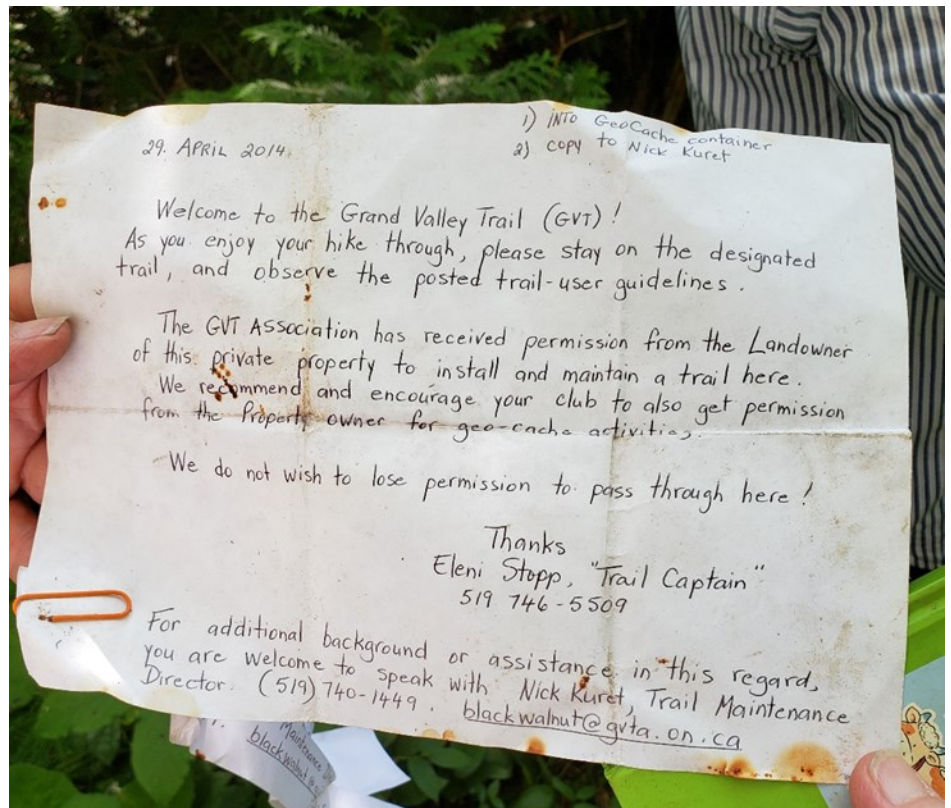 1) INTO GeoCache container
29. APRIL 2014.
2) COPY to Nick Kuret
Welcome to the Grand Valley Trail (GVT) !
As you enjoy your hike through, please stay on the designated
trail, and observe the posted trail-user guidelines.
The GVT Association has received permission from the Landowner
of this private property to install and maintain a trail here.
We recommend and encourage your club to also get permission
from the Property owner for geo-cache activities.
We do not wish to lose permission to pass through here !
Thanks
Eleni Stopp, "Trail Captain"
519 746-5509
For additional background or assistance in this regard,
you are welcome to speak with Nick Kuret, Trail Maintenance
Director. (519) 740-1449. blackwalnut@gvta.on.ca
Maintenance D
blackwalnut@